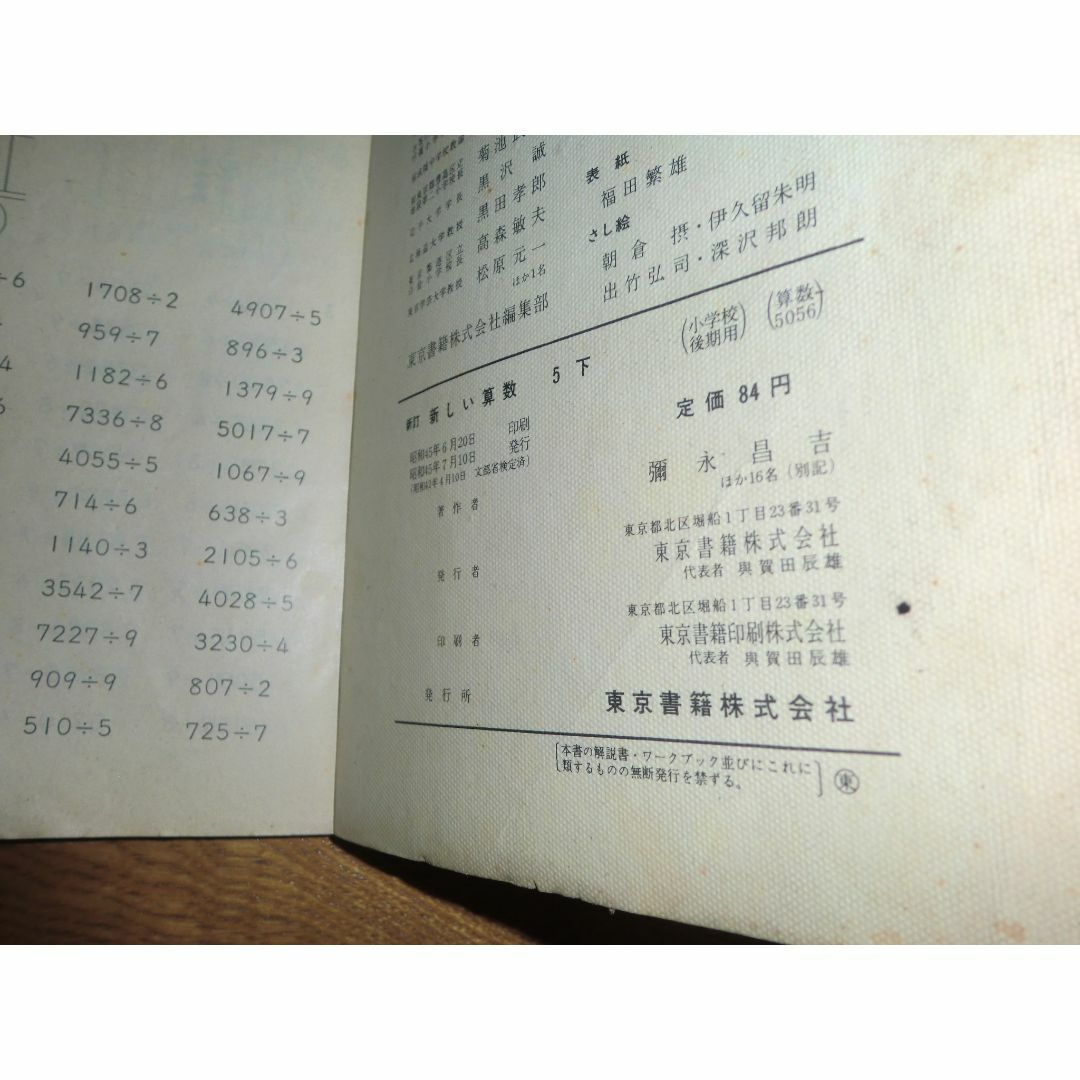 ÷6 1708÷2 4907÷5
959÷7 896÷3
4 1182÷6 1379÷9
6 7336÷8 5017÷7
4055÷5 1067÷9
714÷6 638÷3
1140÷3 2105÷6
3542÷7 4028÷5
7227÷9 3230÷4
909÷9 807÷2
510÷5 725÷7
菊池
黒沢 誠
黒田孝郎
高森敏夫
松原元一
ほか1名
東京書籍株式会社編集部
表紙
福田繁雄
さし絵
朝倉 摂・伊久留朱明
出竹弘司・深沢邦朗
(小学校後期用) (算数5056)
新訂 新しい算数 5下
定価 84円
昭和45年6月20日 印刷
昭和45年7月10日 発行
著作者 彌永昌吉
ほか16名(別記)
東京都北区堀船1丁目23番31号
発行者 東京書籍株式会社
代表者 與賀田辰雄
東京都北区堀船1丁目23番31号
印刷者 東京書籍印刷株式会社
代表者 與賀田辰雄
発行所 東京書籍株式会社
本書の解説書・ワークブック並びにこれに
類するものの無断発行を禁ずる。
東